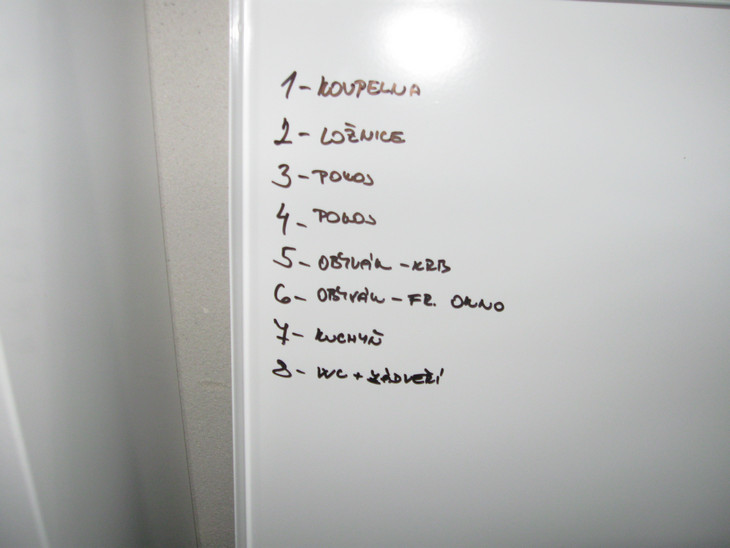 1 - KOUPELNA
2 - LOŽNICE
3 - POKOJ
4 - POKOJ
5 - OBÝVÁK - KRB
6 - OBÝVÁK - FR. OKNO
7 - KUCHYŇ
8 - WC + ZÁDVEŘÍ